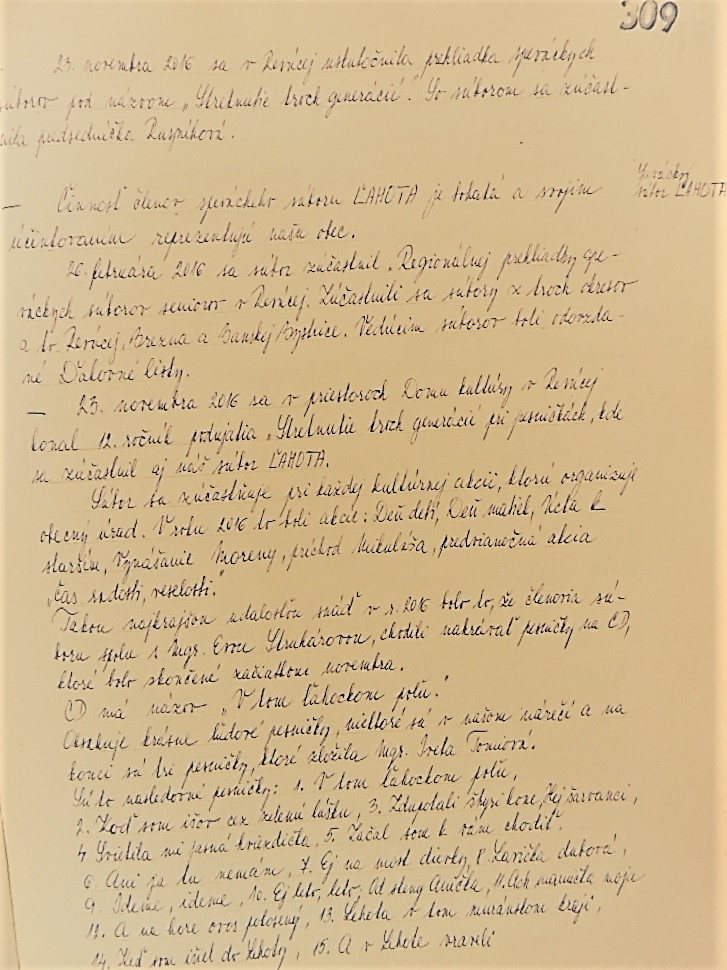 309
23. novembra 2016 sa v Revúcej uskutočnila prehliadka speváckych
súborov pod názvom „Stretnutie troch generácií". So súborom sa zúčast-
nila predsedníčka
—
Činnosť členov speváckeho súboru ĽAHOTA je bohatá a svojím
Spevácky
súbor ĽAHOTA
účinkovaním reprezentujú našu obec.
26. februára 2016 sa súbor zúčastnil „Regionálnej prehliadky spe-
váckych súborov seniorov v Revúcej. Zúčastnili sa súbory z troch okresov
a to Revúcej, Brezna a Banskej Bystrice. Vedúcim súborov boli odovzda-
né Ďakovné listy.
— 23. novembra 2016 sa v priestoroch Domu kultúry v Revúcej
konal 12. ročník podujatia „Stretnutie troch generácií pri pesničkách, kde
sa zúčastnil aj náš súbor ĽAHOTA.
Súbor sa zúčastňuje pri každej kultúrnej akcii, ktorú organizuje
obecný úrad. V roku 2016 to boli akcie: Deň detí, Deň matiek, Úcta k
starším, Vynášanie Moreny, príchod Mikuláša, predvianočná akcia
„Čas radosti, veselosti."
Takou najkrajšou udalosťou snáď v r. 2016 bolo to, že členovia sú-
boru spolu s Mgr. Evou Struhárovou, chodili nahrávať pesničky na CD,
ktoré bolo skončené začiatkom novembra.
CD má názov „V tom ľahockom poľu."
Obsahuje krásne ľudové pesničky, niektoré sú v našom nárečí a na
konci sú tri pesničky, ktoré zložila Mgr. Iveta Tomiová.
Sú to nasledovné pesničky: 1. V tom ľahockom poľu,
2. Koď som išov cez zelenú lúšku, 3. Zdupotali štyri kone, Hej šarvanci,
4. Svietila mi jasná hviezdička, 5. Začal som k vám chodiť,
6. Ani ja tu nemám, 7. Ej na most dievky, 8. Lavička dubová,
9. Ideme, ideme, 10. Ej leto, leto, Od steny Anička, 11. Ach mamička moja
12. A na hore ovos pokosený, 13. Lehota v tom muránskom kraji,
14. Keď som išiel do Lehoty, 15. A v Lehote vraveli